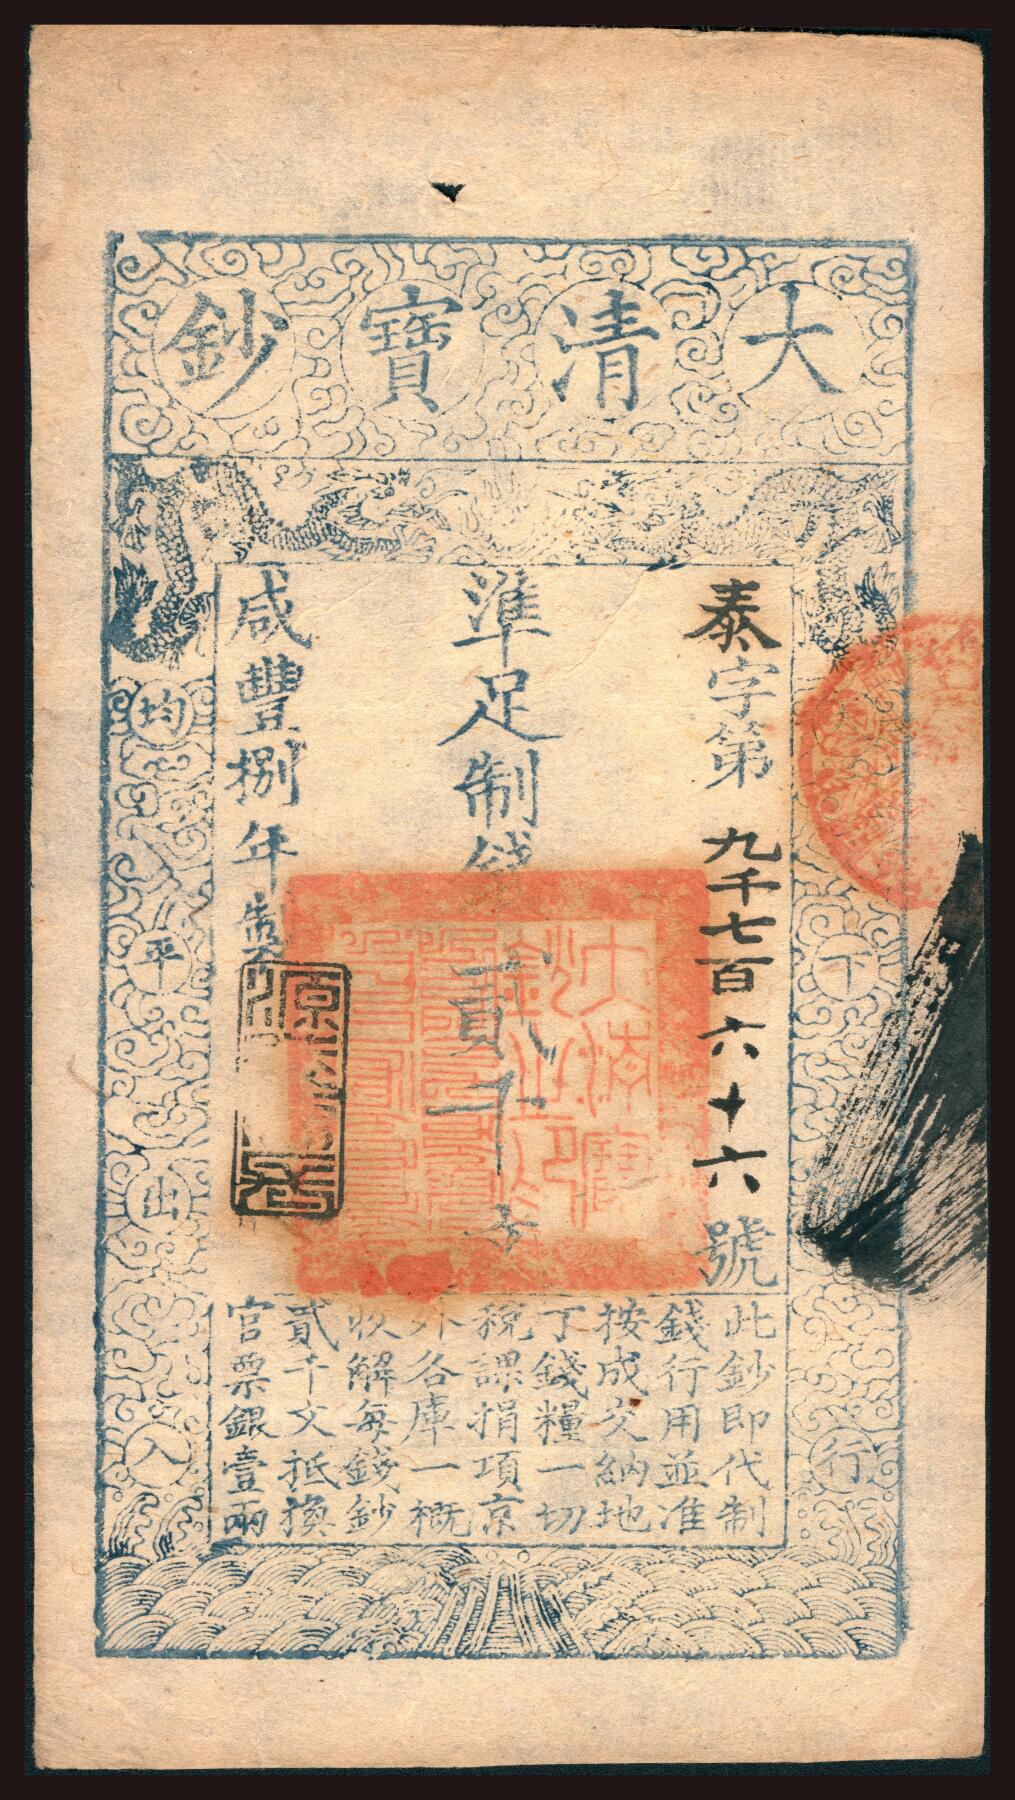 大清寶鈔
泰字第九千七百六十六號
準足制錢貳千文
咸豐捌年製
天下
通行
均平
出入
此鈔即代制
錢行用並准
按成交納地
丁錢糧一切
稅課捐項京
外各庫一概
收解每錢鈔
貳千文抵換
官票銀壹兩
大清寶
鈔之印